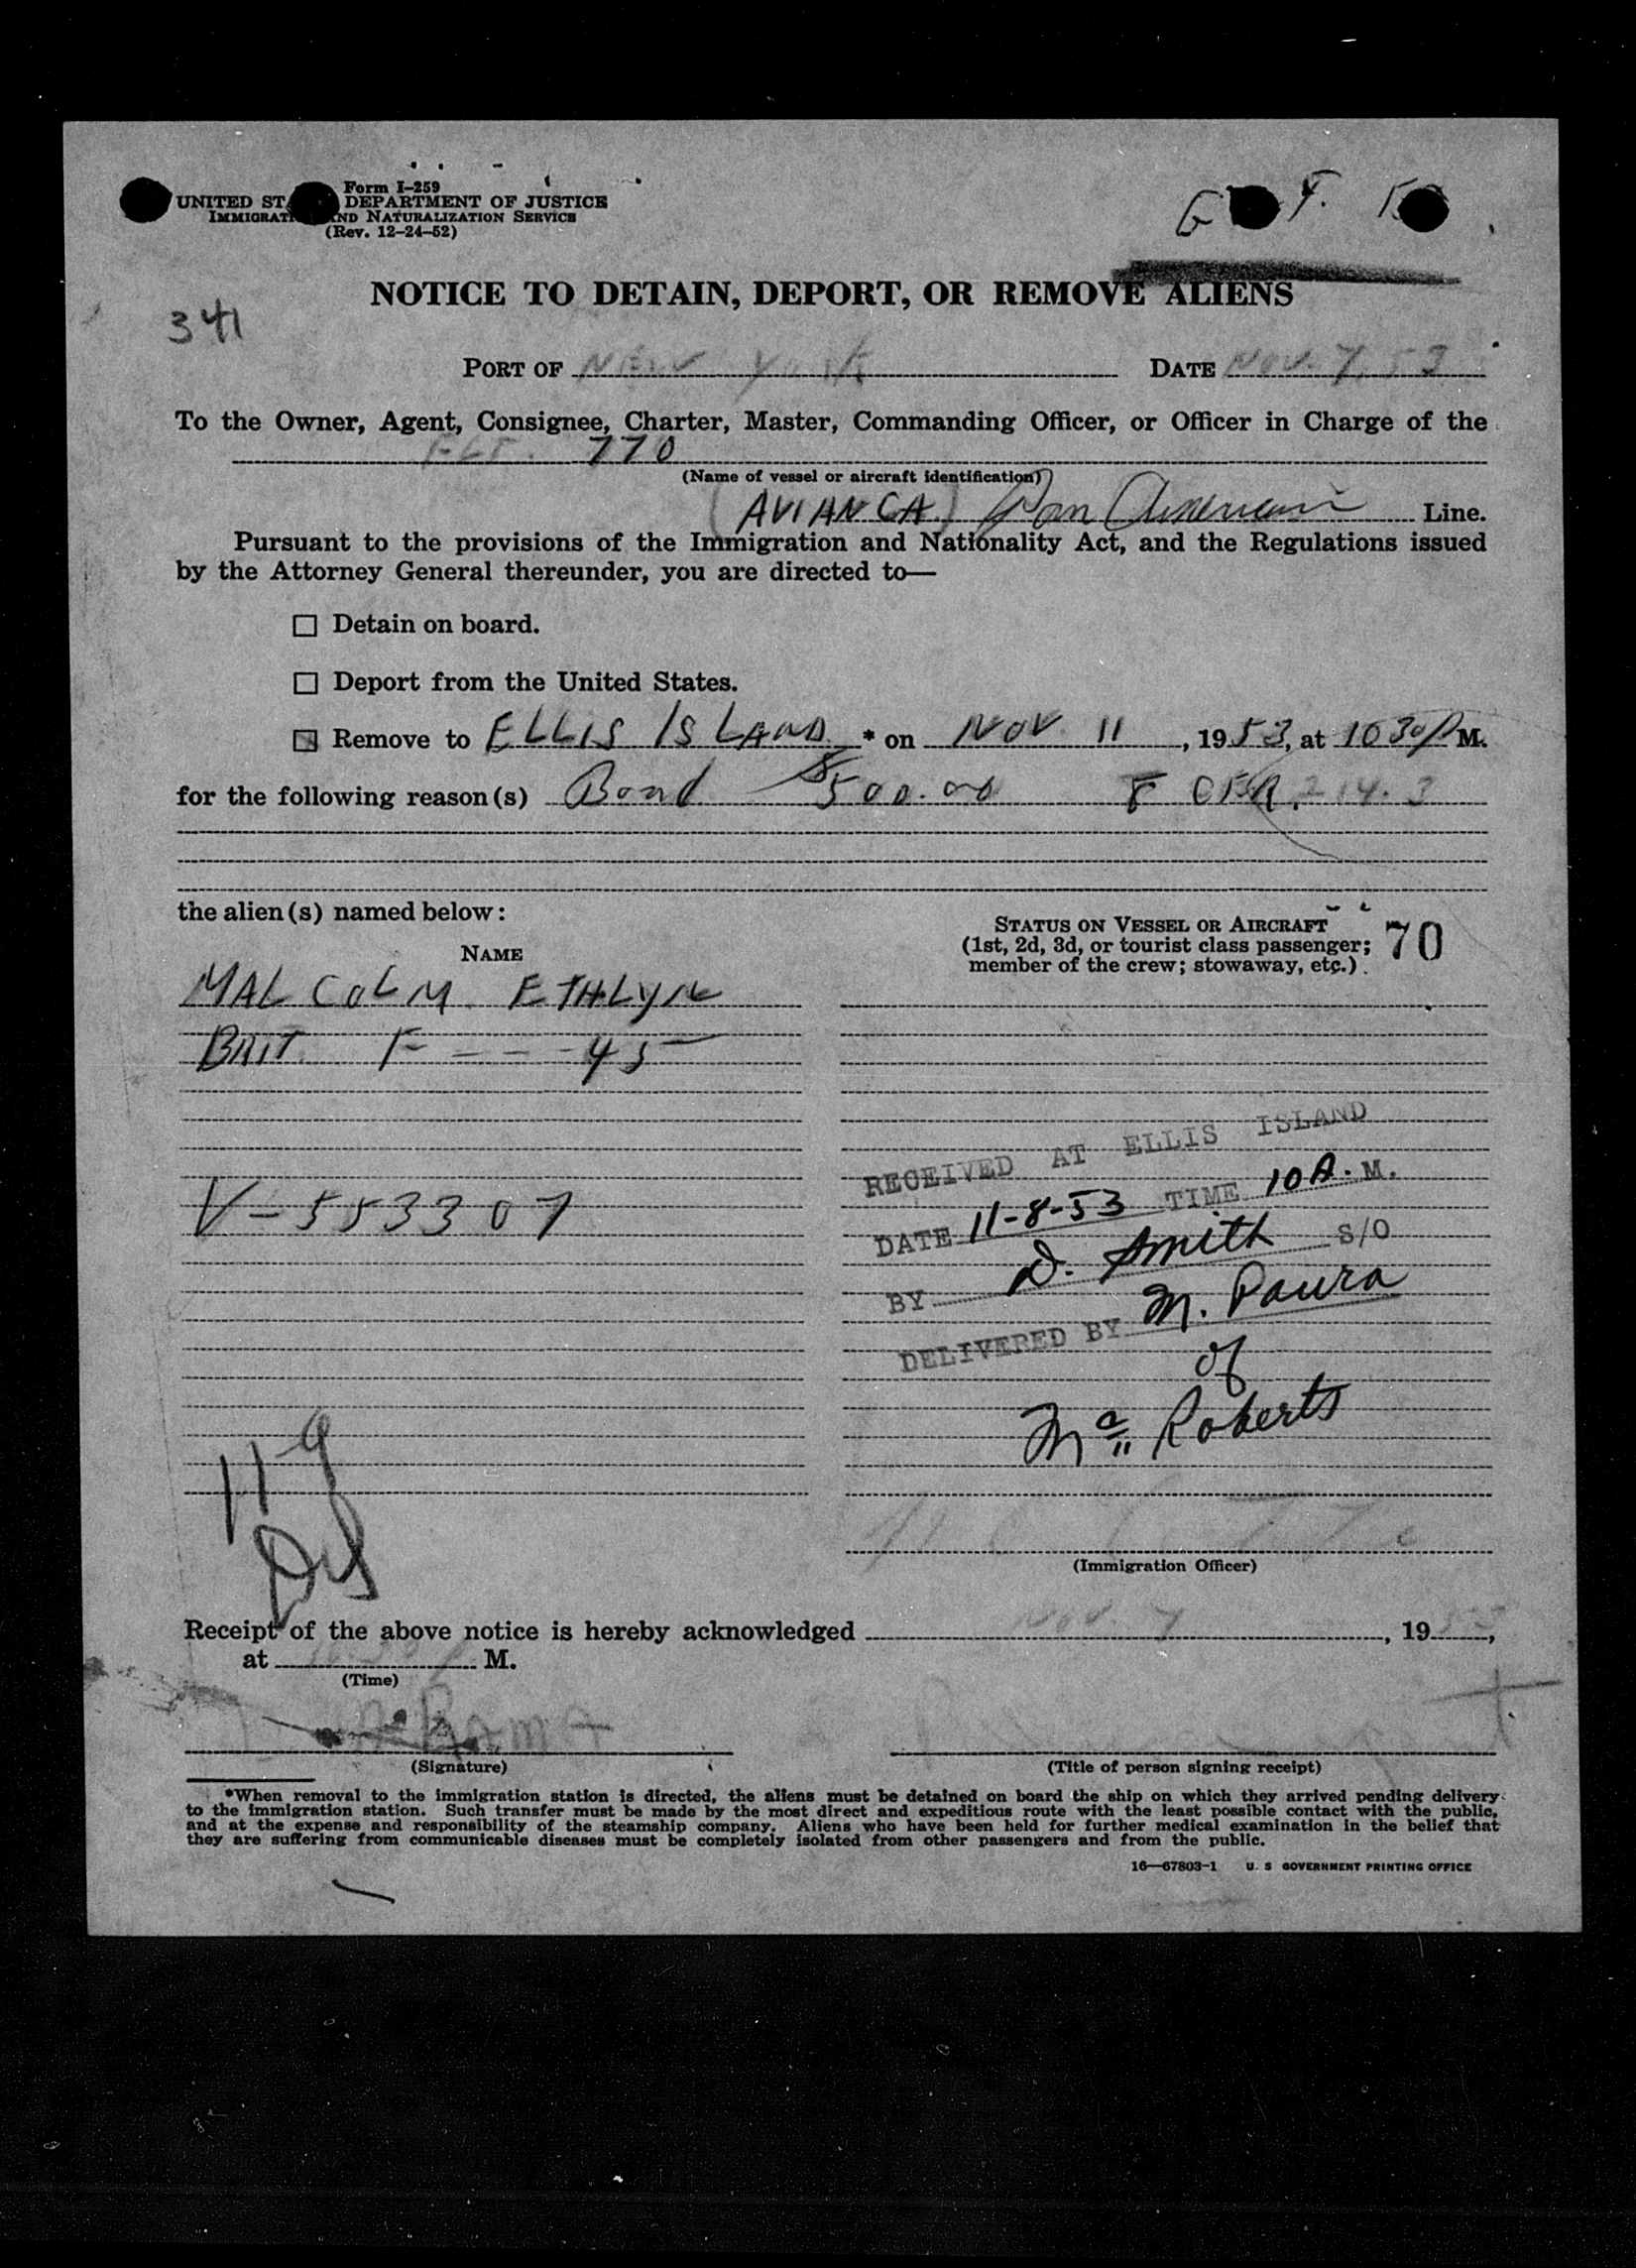 Form I-259
UNITED ST DEPARTMENT OF JUSTICE
IMMIGRATI ND NATURALIZATION SERVICE
(Rev. 12-24-52)
NOTICE TO DETAIN, DEPORT, OR REMOVE ALIENS
341
PORT OF NEW YORK DATE NOV. 7, 53
To the Owner, Agent, Consignee, Charter, Master, Commanding Officer, or Officer in Charge of the
FLT. 770
(Name of vessel or aircraft identification)
(AVIANCA) Pan American Line.
Pursuant to the provisions of the Immigration and Nationality Act, and the Regulations issued
by the Attorney General thereunder, you are directed to—
☐ Detain on board.
☐ Deport from the United States.
☒ Remove to ELLIS ISLAND * on NOV 11, 1953, at 10 30 P M.
for the following reason(s) Bond $500.00 8 CFR 214.3
the alien(s) named below:
STATUS ON VESSEL OR AIRCRAFT
(1st, 2d, 3d, or tourist class passenger;
member of the crew; stowaway, etc.)
70
NAME
MALCOLM ETHLYN
BRIT. F - - - 45
V-553307
RECEIVED AT ELLIS ISLAND
DATE 11-8-53 TIME 10 A. M.
BY D. Smith S/O
DELIVERED BY M. Paura
of
Mac Roberts
11-9
(Immigration Officer)
Receipt of the above notice is hereby acknowledged Nov. 7, 19,
at M.
(Time)
(Signature)
(Title of person signing receipt)
*When removal to the immigration station is directed, the aliens must be detained on board the ship on which they arrived pending delivery
to the immigration station. Such transfer must be made by the most direct and expeditious route with the least possible contact with the public,
and at the expense and responsibility of the steamship company. Aliens who have been held for further medical examination in the belief that
they are suffering from communicable diseases must be completely isolated from other passengers and from the public.
16—67803-1 U. S GOVERNMENT PRINTING OFFICE